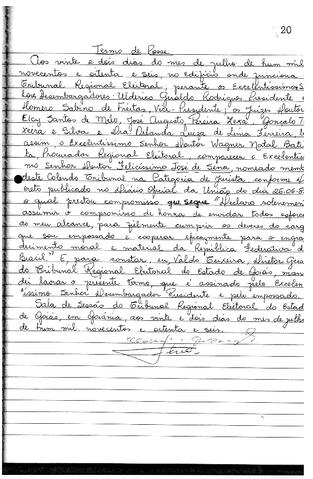 20
Termo de Posse
Aos vinte e dois dias do mes de julho de hum mil
novecentos e oitenta e seis, no edifício onde funciona
Tribunal Regional Eleitoral, perante os Excelentissimos S
Desembargadores: Uldenico Geraldo Rodrigues Presidente
Homero Sabino de Freitas, Vice-Presidente; os Juizes Doutor
Elcy Santos de Melo, José Augusto Pereira Gonçalo T
xeira e Silva e Dra Orlanda Luiza de Lima Ferreira,
assim, o Excelentissimo Senhor Doutor Wagner Natal Batis
ta, Procurador Regional Eleitoral, compareceu o Excelentis
mo Senhor Doutor Felicíssimo José de Sena, nomeado memb
deste Colendo Tribunal na Categoria de Jurista, conforme
creto publicado no Diário Oficial da União do dia 25.06.8
o qual prestou compromisso que segue "Declaro solenemen
assumir o compromisso de honra de envidar todos esforço
do meu alcance, para fielmente cumprir os deveres do carg
que sou empossado e cooperar eficazmente para o engra
decimento moral e material da República Federativa d
Brasil" E, para constar, eu Valdo Teixeira, Diretor Gera
do Tribunal Regional Eleitoral do Estado de Goiás, man
dei lavrar o presente termo, que é assinado pelo Excelen
tíssimo Senhor Desembargador Presidente e pelo empossado.
Sala de Sessão do Tribunal Regional Eleitoral do Estad
de Goiás, em Goiânia, aos vinte e dois dias do mes de julho
de hum mil novecentos e oitenta e seis.